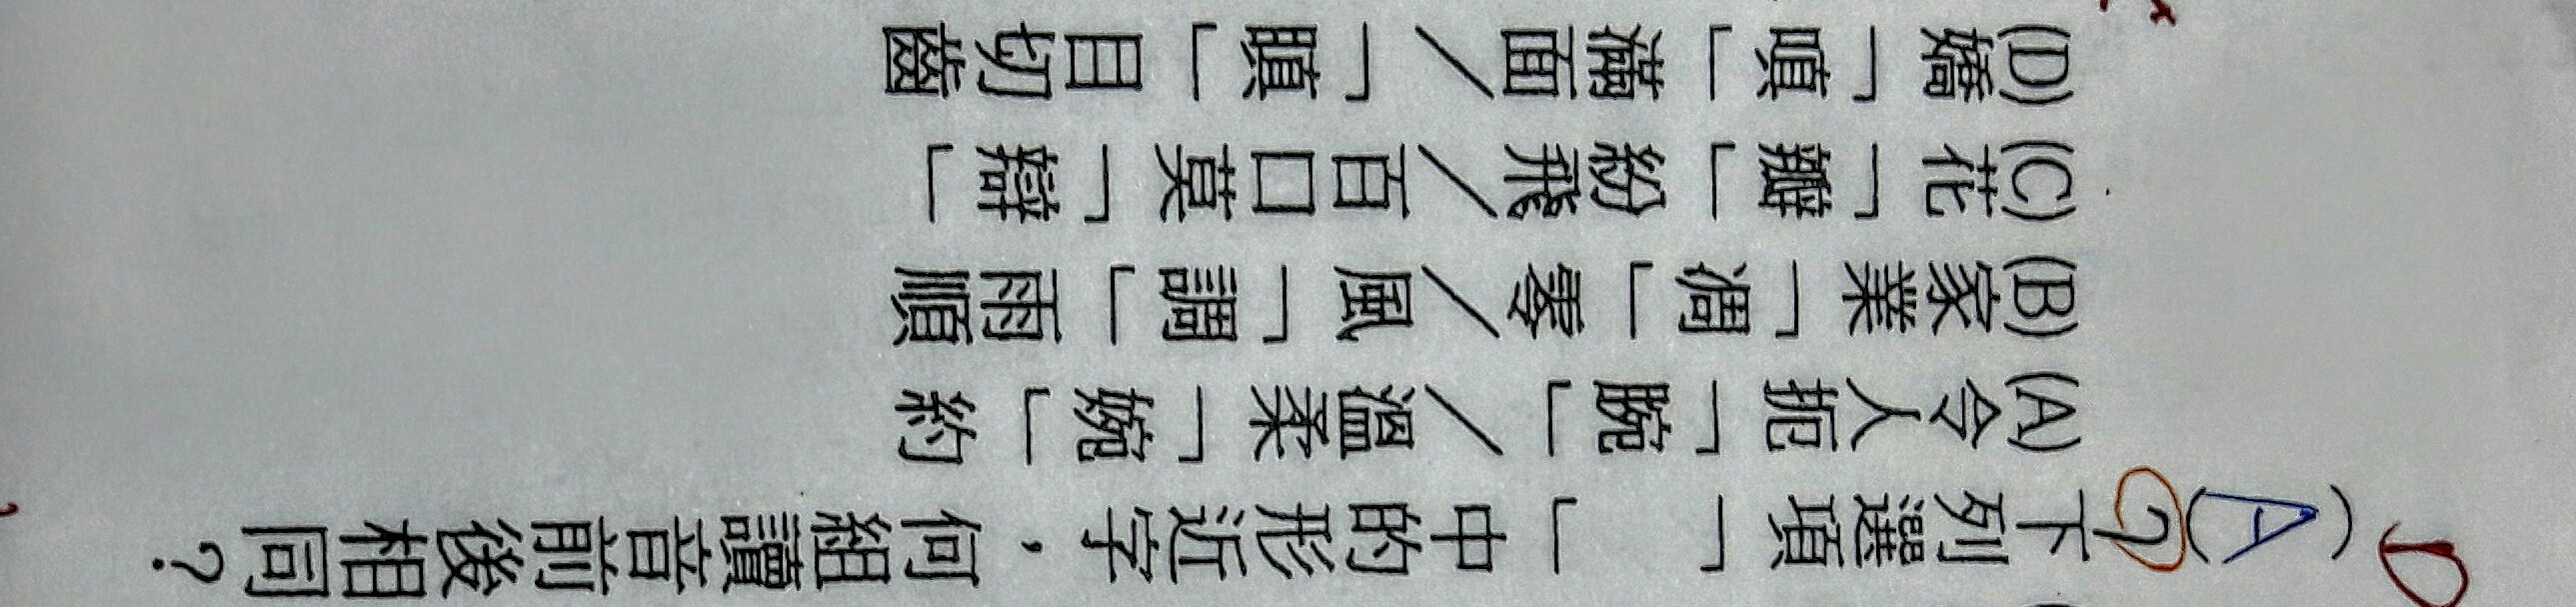 D (A) 下列選項「 」中的形近字，何組讀音前後相同？
(A)令人扼「腕」／溫柔「婉」約
(B)家業「凋」零／風「調」雨順
(C)花「瓣」紛飛／百口莫「辯」
(D)嬌「嗔」滿面／「瞋」目切齒